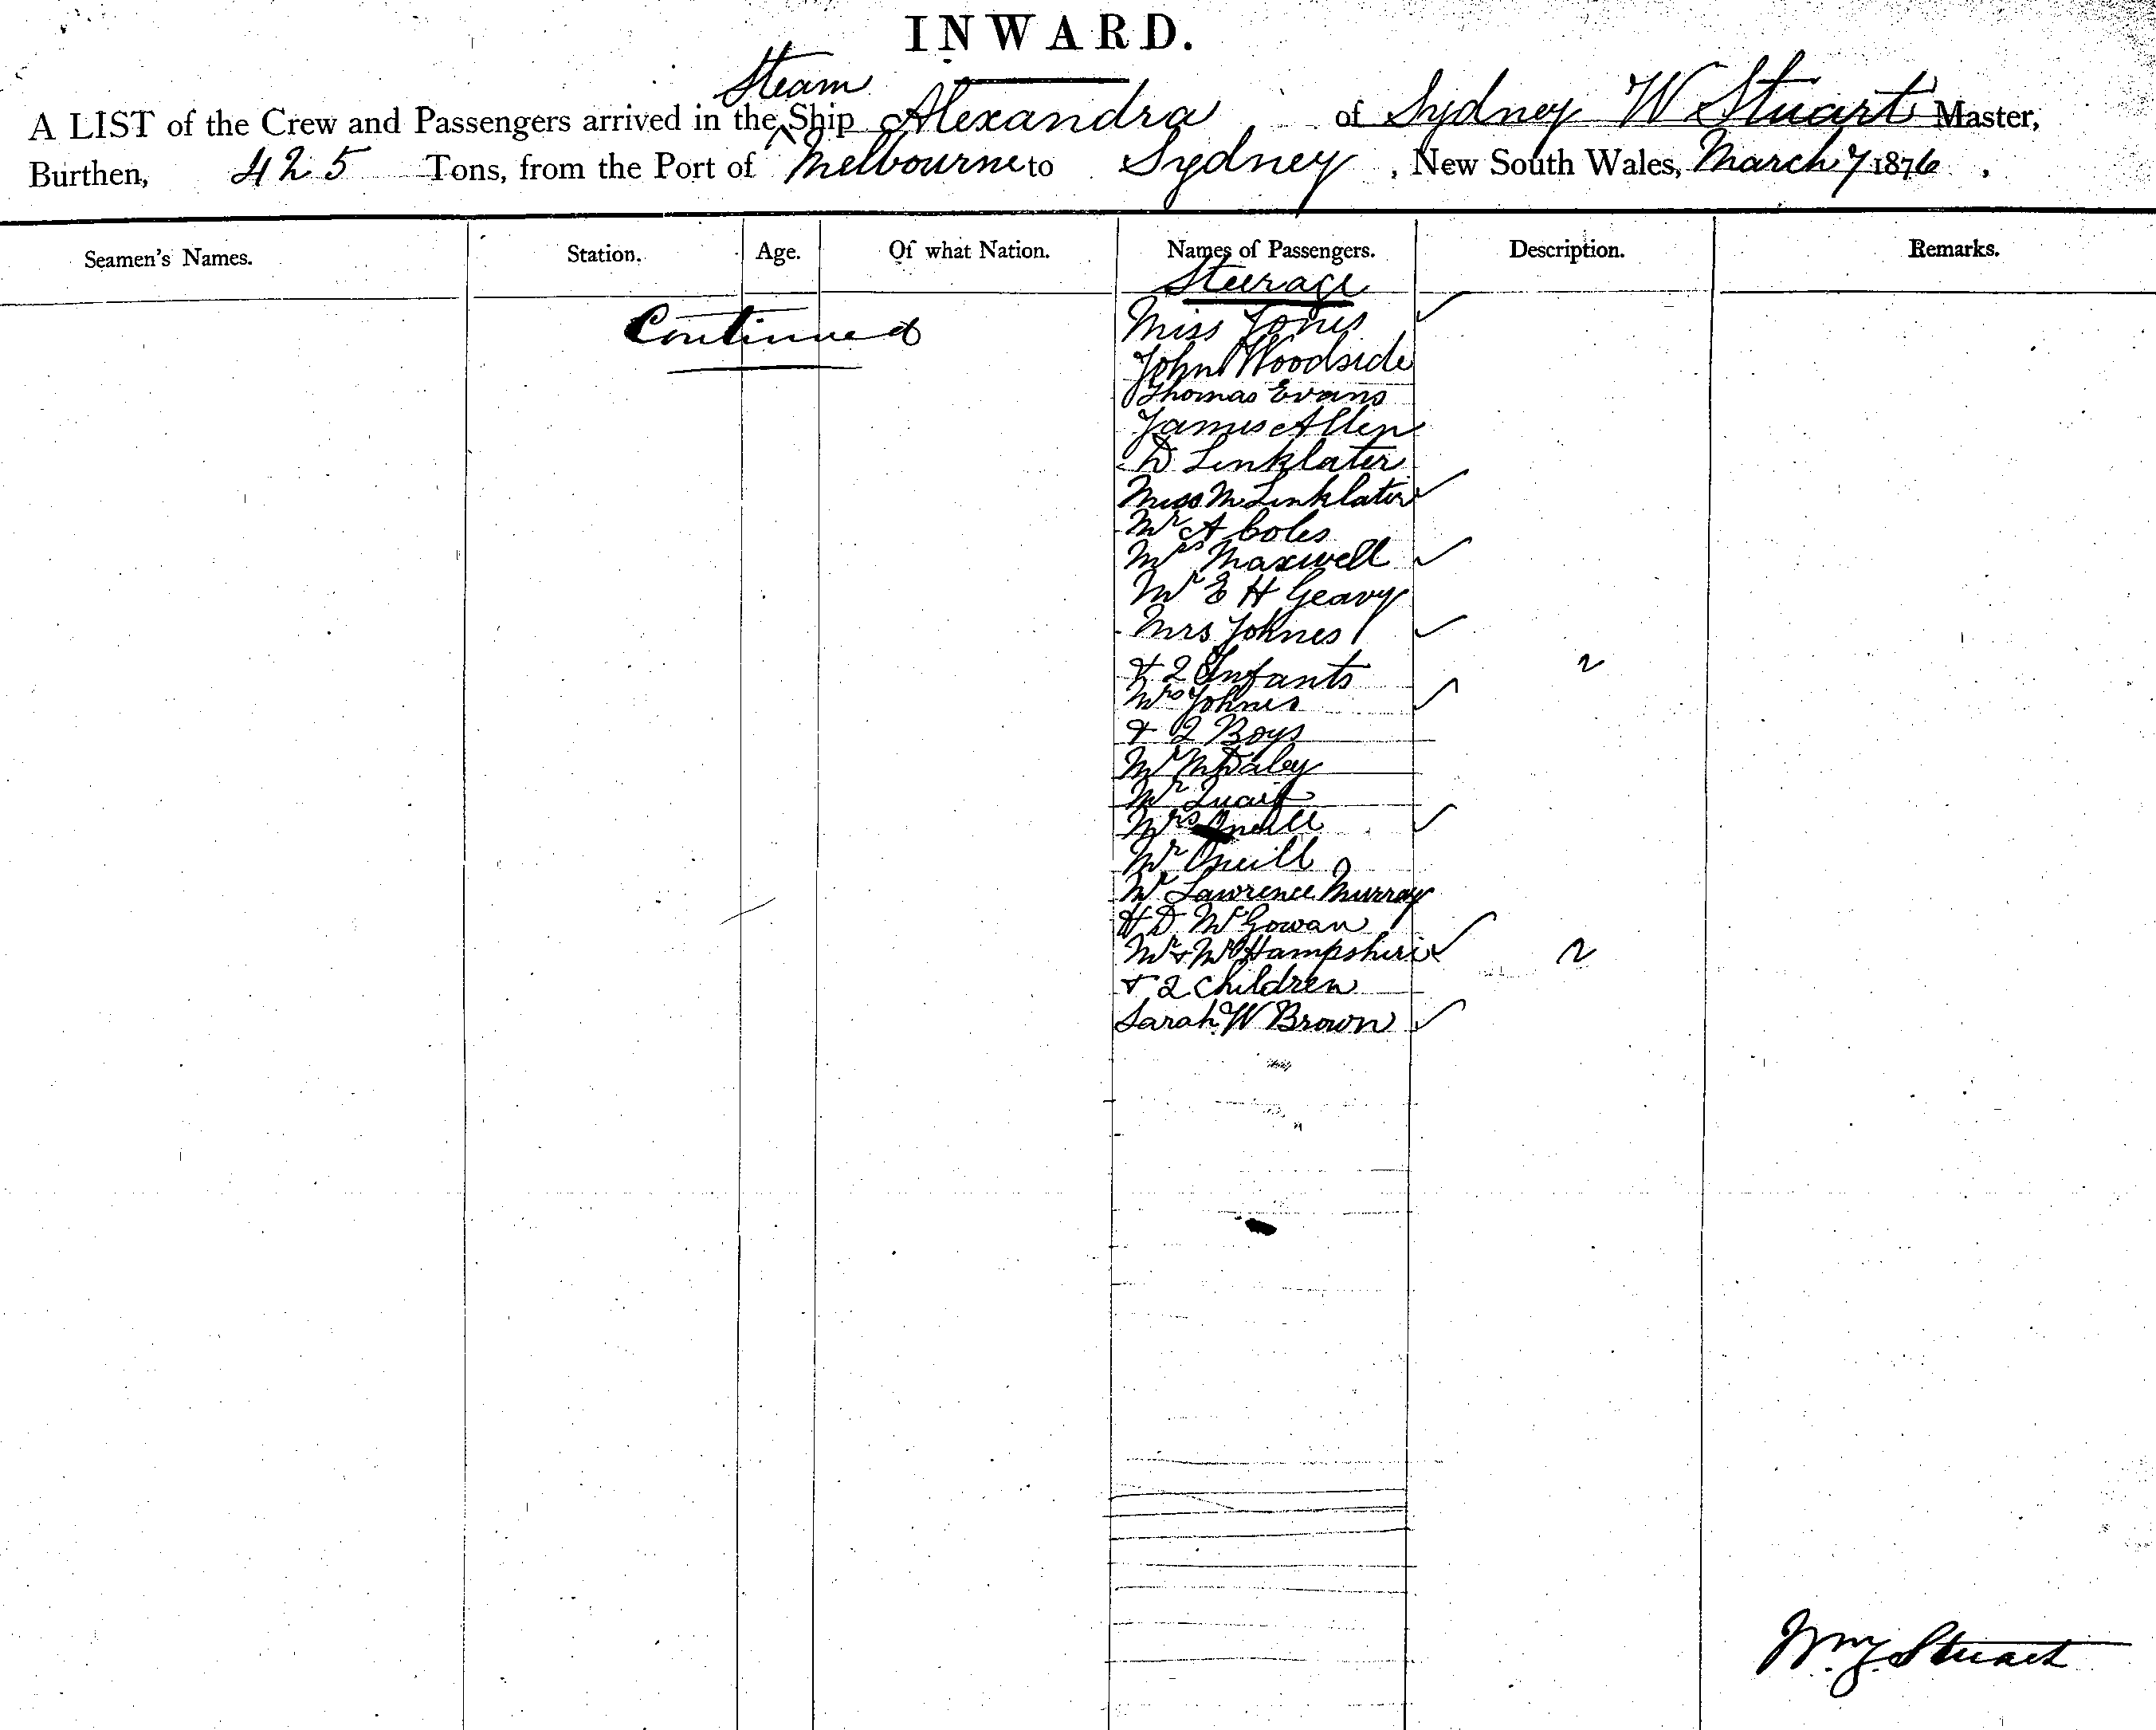 INWARD.
Steam
A LIST of the Crew and Passengers arrived in the ^ Ship Alexandra of Sydney W Stuart Master,
Burthen, 425 Tons, from the Port of Melbourne to Sydney, New South Wales, March 7 1876.
Seamen's Names. Station. Age. Of what Nation. Names of Passengers. Description. Remarks.
Steerage
Continued
Miss Jones ✓
John Woodside
Thomas Evans
James Allen
D Linklater
Miss M Linklater ✓
Mr A Coles
Mrs Maxwell ✓
Mr E H Geavy
Mrs Johnes ✓
& 2 Infants 2
Mrs Johnes ✓
& 2 Boys
Mr M Daley
Mr Quaif
Mrs Oneill ✓
Mr Oneill
Mr Lawrence Murray
H D McGowan
Mr & Mrs Hampshire ✓ 2
& 2 Children
Sarah W Brown ✓
Stuart